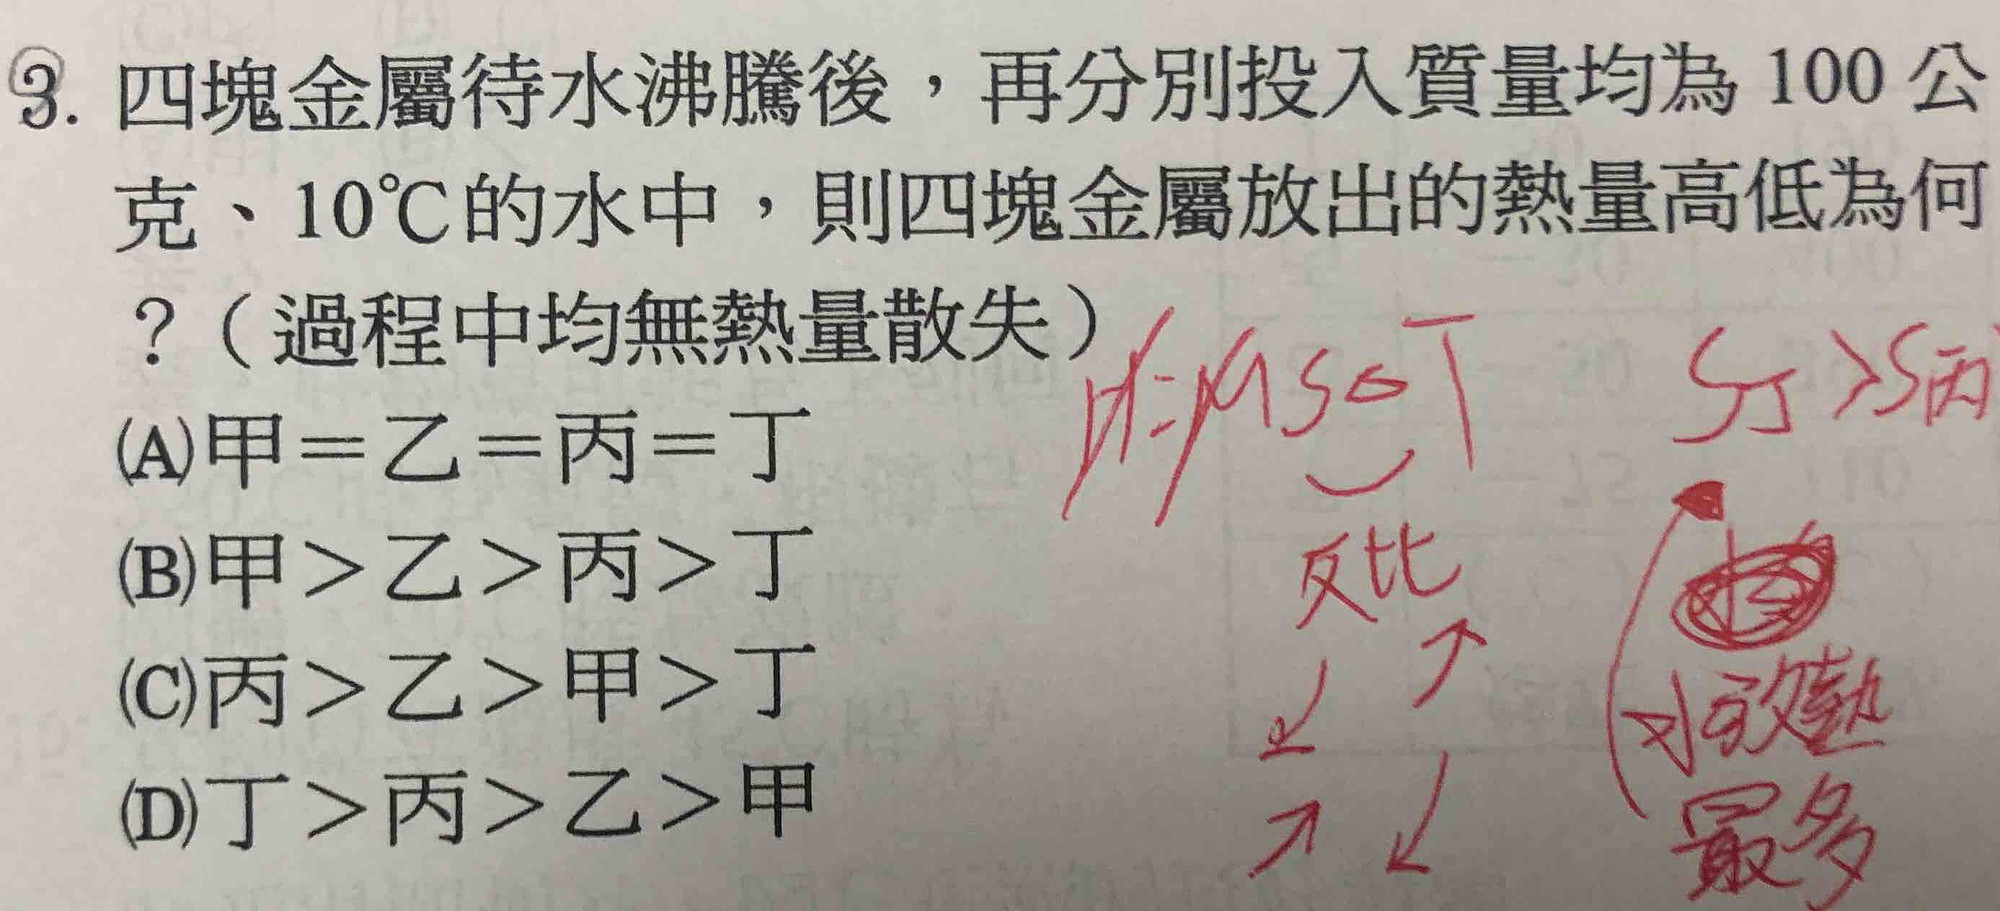 3. 四塊金屬待水沸騰後，再分別投入質量均為 100 公
克、10℃的水中，則四塊金屬放出的熱量高低為何
？（過程中均無熱量散失）
(A)甲＝乙＝丙＝丁
(B)甲＞乙＞丙＞丁
(C)丙＞乙＞甲＞丁
(D)丁＞丙＞乙＞甲
H=MS△T
反比
S丁>S丙
放熱
最多